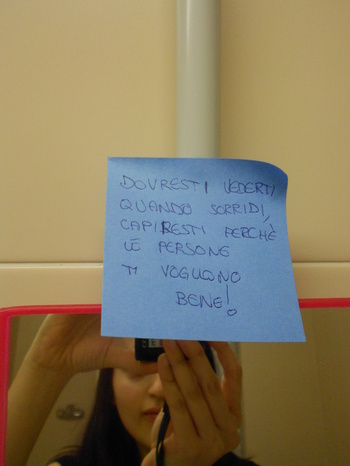 DOVRESTI VEDERTI
QUANDO SORRIDI,
CAPIRESTI PERCHÈ
LE PERSONE
TI VOGLIONO
BENE!